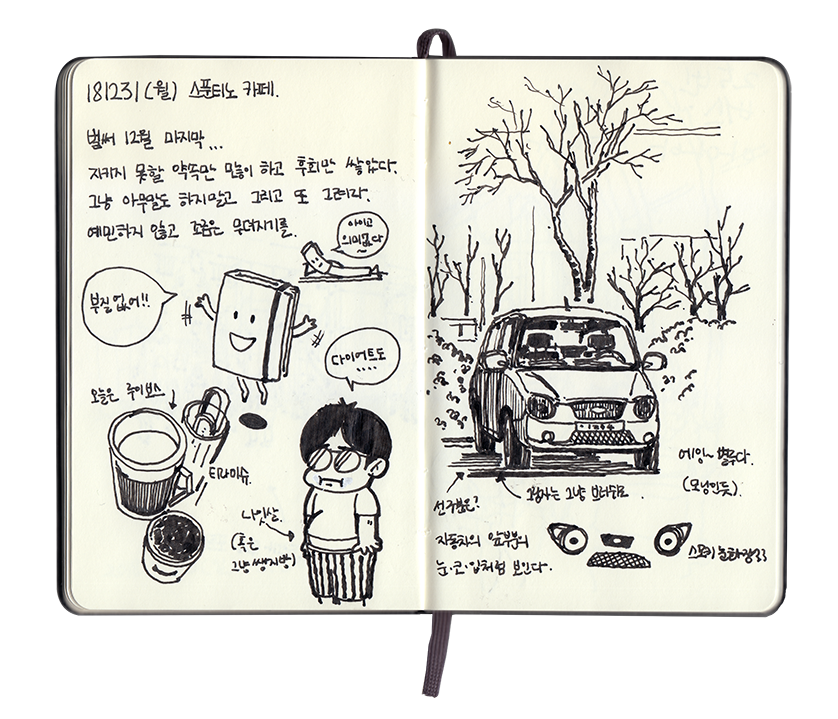 181231 (월) 스푼티노 카페.
벌써 12월 마지막...
지키지 못할 약속만 많이 하고 후회만 쌓았다.
그냥 아무말도 하지말고 그리고 또 그려라.
예민하지 않고 조금은 무뎌지기를.
아이고
의미없다
부질없어!!
다이어트도
....
오늘은 루이보스
티라미슈.
나잇살.
(혹은
그냥 쌩지방)
에잉~ 별루다.
(모닝인듯).
그림자는 그냥 브러쉬로.
선구분은?
자동차의 앞부분의
눈·코·입처럼 보인다.
스모키 눈화장